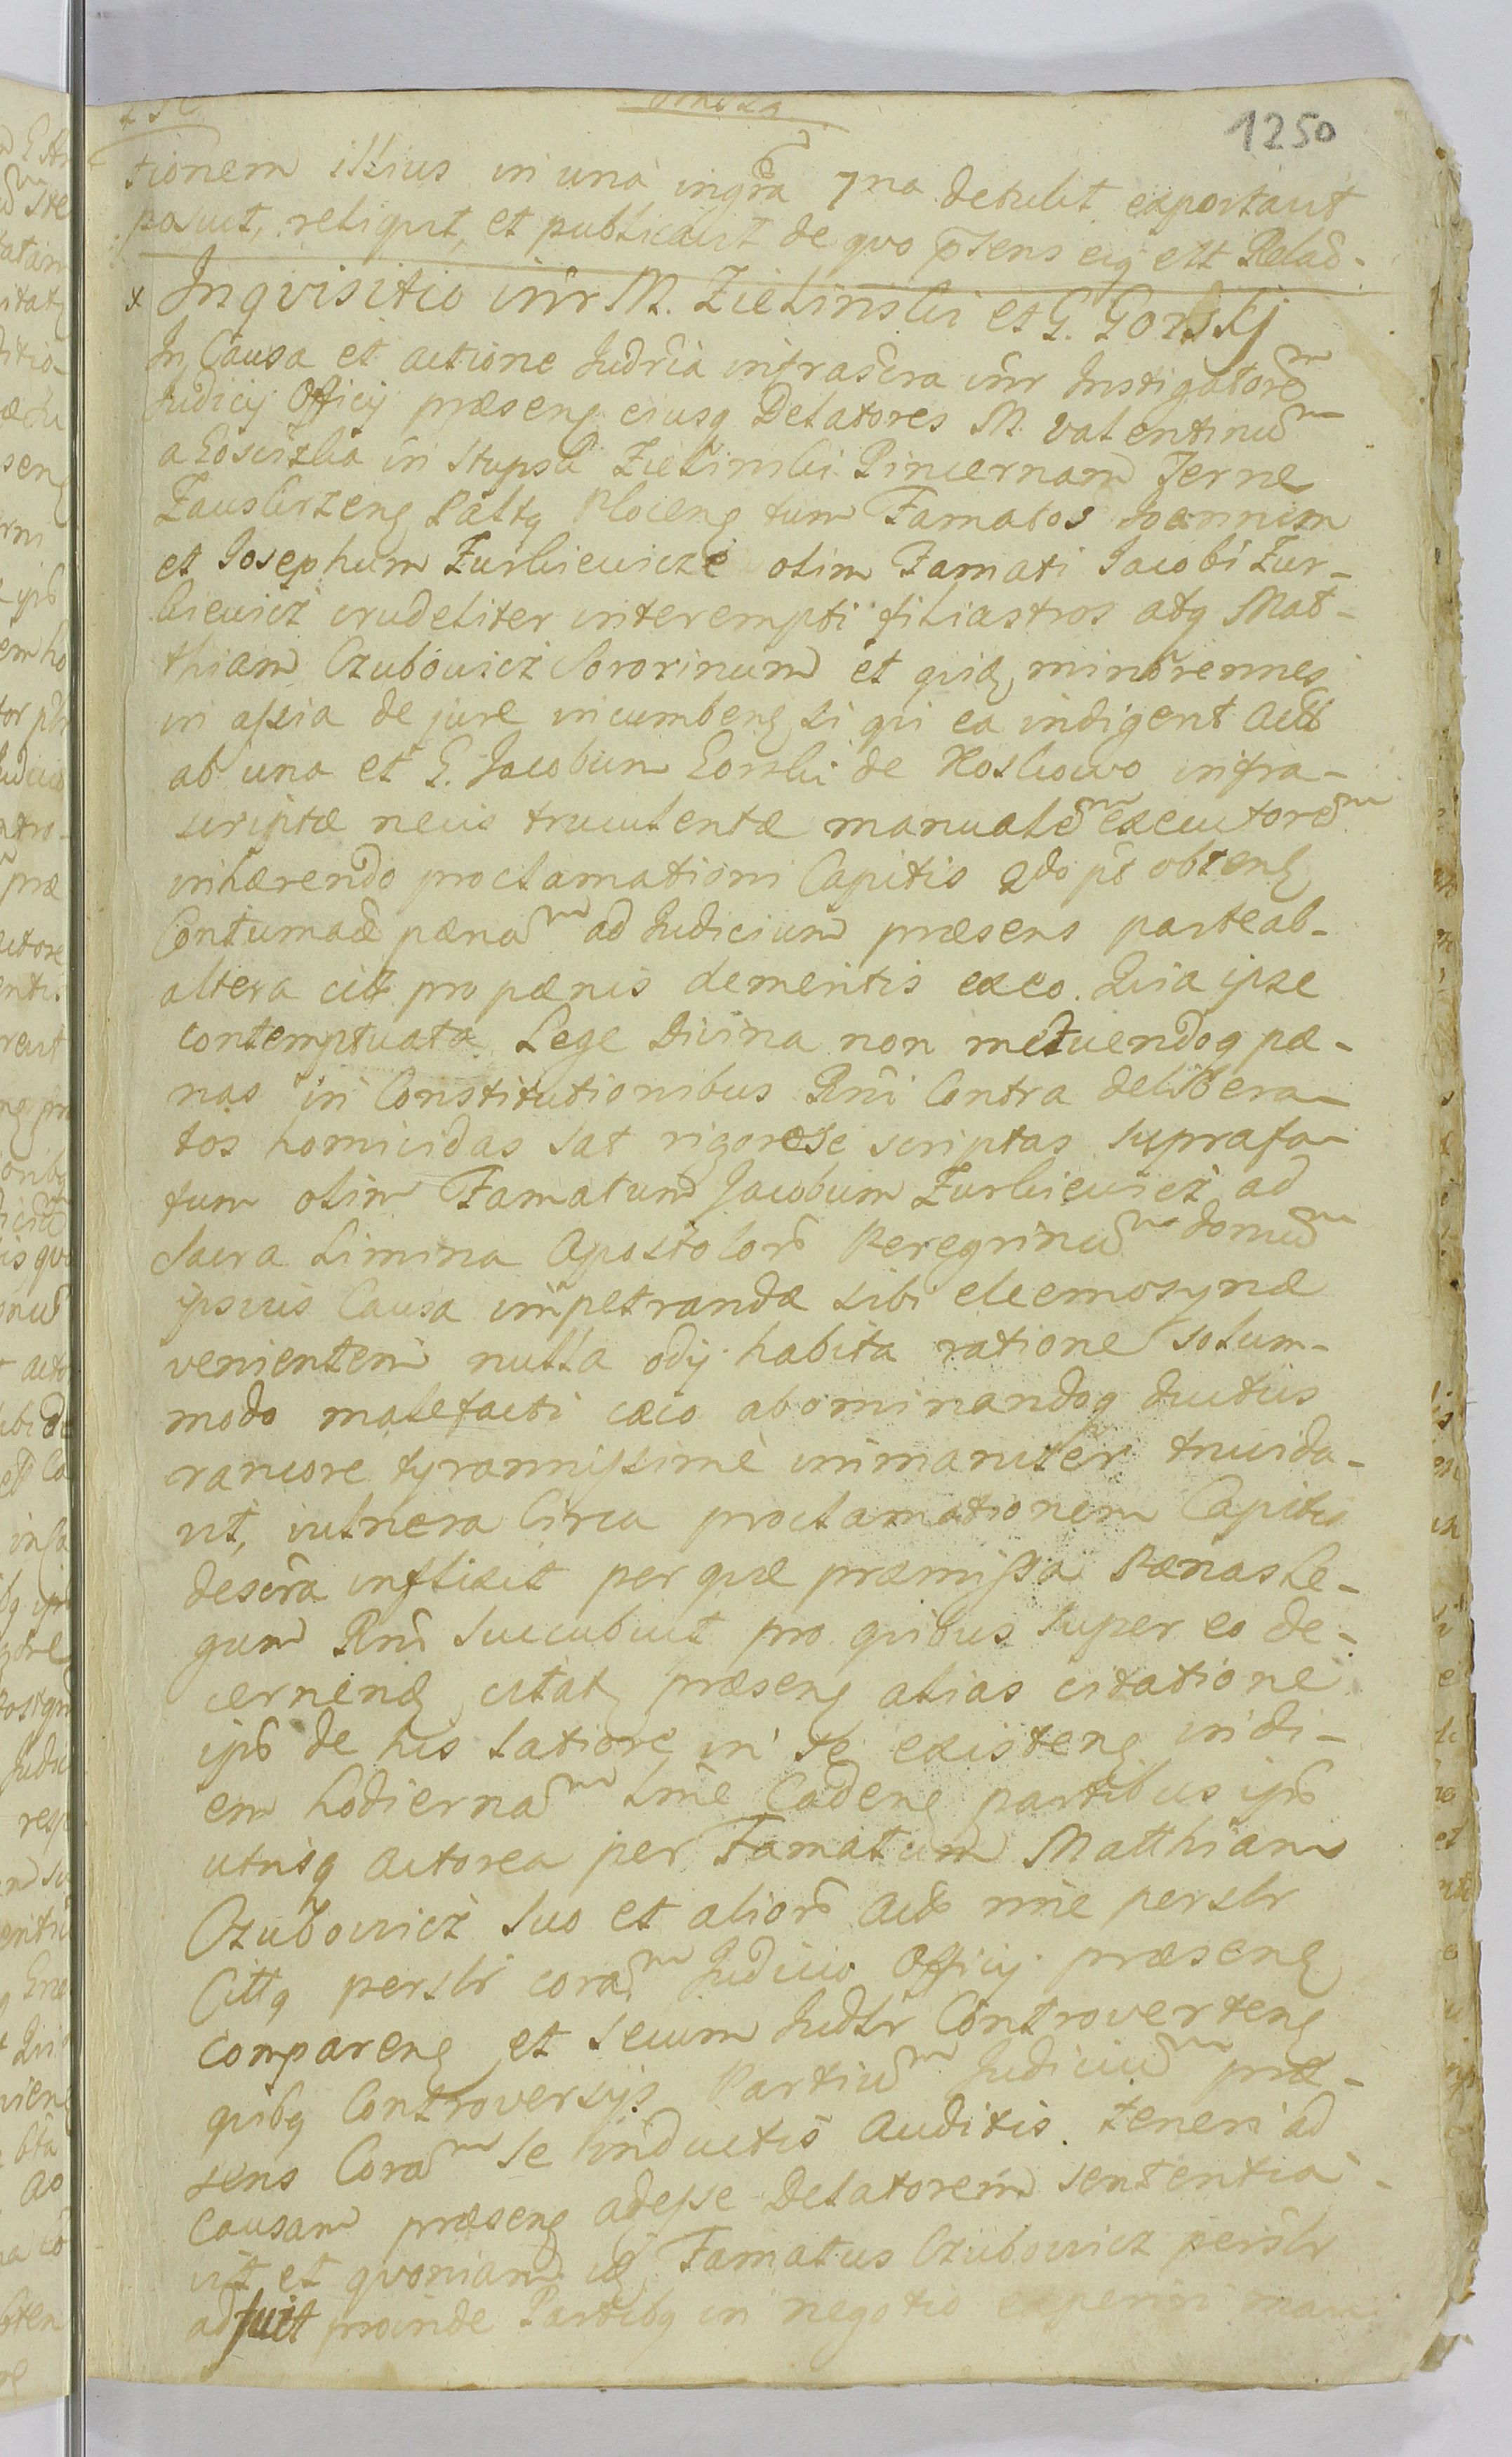 1250
tionem illius in una ingrā 7na detulit exportavit
posuit, reliquit, et publicavit de quo p̄sens eiq est Relaō.
x Inqvisitio inr M. Zielinski et G. Gorskj
In Causa et actione Judrīa infrascra inr Instigatorem
Judicij Officij præsenq eiusq Delatores M. Valentinum
a in Słupsk Zielinski Pincernam Terræ
Zauskrzenq Paltq Plocenq tum Famatos Joannem
et Josephum Zurkiewicze olim Famati Jacobi Zur-
kiewicz crudeliter interempti filiastros atq Mat-
thiam Czubowicz Sororinum et quidem minorennes
in assīa de jure incumbenq si qui ea indigent Act
ab una et G. Jacobum Gorski de Koskowo infra-
scriptæ necis truculentæ manualem executorem
inhærendo proclamationi Capitis 2do po obtenq
Contumaciæ pænam ad Judicium præsens parte ab-
altera citt pro pænis demeritis ex eo. Quia ipse
contemptuata Lege Divina non metuendoq pæ-
nas in Constitutionibus Rnī Contra delibera-
tos homicidas sat rigorose scriptas suprafa-
tum olim Famatum Jacobum Zurkiewicz ad
Sacra Limina Apostolorō Peregrinum domum
ipsius Causa impetrandæ sibi eleemosynæ
venientem nulla odij habita ratione solum-
modo malefacti cæco abominandoq ductus
rancore tyrannissimè immaniter trucida-
vit, vulnera Circa proclamationem Capitis
descra inflixit per quæ præmissa Pænas Le-
gum Rnī Succubuit pro quibus super eo de-
cernenđ citatq præsenq alias citatione
ipō de his latiore in se existenq in di-
em hodiernam lmē Cadenq partibus ipō
utrisq actorea per Famatum Matthiam
Czubowicz suo et aliorō Actō nnē perslr
Cittq perslr coram Judicio Officij præsenq
comparenq et secum Judlr Controvertenq
quibq Controversijs Partium Judicium præ-
sens Coram se inductis auditis teneri ad
causam præsenq adesse Delatorem sententia-
vit et quoniam iđ Famatus Czubowicz perslr
adfuit proinde Partibq in negotio experiri